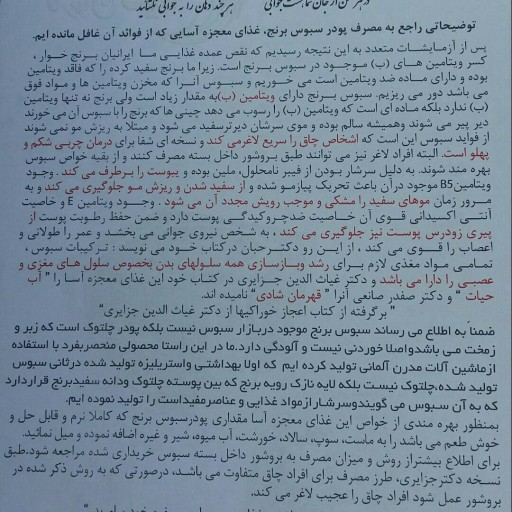 هر چند دهان را به جوابی نگشائید
توضیحاتی راجع به مصرف پودر سبوس برنج، غذای معجزه آسایی که از فوائد آن غافل مانده ایم.
پس از آزمـایشـات متعدد به این نتیجه رسیدیم که نقص عمده غذایـی مـا ایرانیان بـرنج خـوار ،
کسر ویتامین هـای (ب) مـوجـود در سبوس بـرنـج است. زیرا ما برنج سفید کرده را که فاقد ویتامین
بوده و دارای مـاده ضد ویتامین است می خـوریم و سبـوس آنـرا که مخزن ویتامین ها و مـواد فوق
می باشد دور می ریزیم. سبوس بـرنج دارای ویتامین (ب)به مقدار زیاد است ولی برنج نه تنها ویتامین
(ب) ندارد بلکه مـاده ای است که ویتامین (ب) را رسوب می دهد چینی ها که برنج را با سبوس آن می خورند
دیر پیر می شوند وهمیشه سالم بوده و موی سرشان دیرترسفید می شود و مبتلا به ریزش مو نمی شوند
از فواید سبوس این است که اشخاص چاق را سریع لاغرمی کند و نسخه ای شفا برای درمان چربی شکم و
پهلو است. البته افراد لاغر نیز می توانند طبق بروشور داخل بسته مصرف کنند و از بقیه خواص سبوس
بهره مند شوند. به دلیل سرشار بـودن از فیبر نامحلول، ملین بوده و یبوست را بـرطرف می کند . وجـود
ویتامینB5 موجود درآن باعث تحریک پیازمـو شده و از سفید شدن و ریزش مـو جلوگیری می کند و به
مـرور زمان موهای سفید را مشکی و موجب رویش مجدد آن می شود . وجـود ویتامین E و خاصیت
آنتـی اکسیدانی قـوی آن خـاصیت ضدچروکیدگـی پوست دارد و ضمن حفظ رطـوبت پوست از
پیری زودرس پوسـت نیز جلوگیری می کند ، به شخص نیروی جوانی می بخشد و عمر را طولانی و
اعصاب را قـوی می کند ، از ایـن رو دکتـر حبان درکتاب خـود می نویسد : تـرکیبات سبوس ،
تمامـی مـواد مغذی لازم بـرای رشد وبـازسازی همه سلـولهای بدن بخصوص سلول های مغزی و
عصبـی را دارا می باشد و دکتر غیاث الدین جـزایری در کتاب خود این غذای معجزه آسا را " آب
حیات " و دکتر صفدر صانعی آنرا " قهرمان شادی" نامیده اند.
" بر گرفته از کتاب اعجاز خوراکیها از دکتر غیاث الدین جزایری"
ضمناً به اطلاع می رساند سبوس برنج موجود دربازار سبوس نیست بلکه پودر چلتوک است که زبر و
زمخت مـی باشدواصلا خوردنی نیست و آلودگی دارد.مـا در این راستا محصولی منحصربفرد با استفاده
ازماشین آلات مدرن آلمانی تولید کرده ایم که اولا بهداشتـی واستریلیزه تولید شده درثانی سبوس
تولید شـده،چلتوک نیسـت بلکه لایه نازک رویه برنج که بین پوسـته چلتوک ودانه سفیدبرنج قراردارد
که به آن سـبوس می گویندوسرشارازمواد غذایی و عناصرمفیداست را تولید نموده ایم.
بمنظور بهره مندی از خواص این غذای معجزه آسا مقداری پودرسبوس برنج که کاملا نرم و قابل حل و
خوش طعم می باشد را به ماست، سوپ، سالاد، خورشت، آب میوه، شیر و غیره اضافه نموده و میل نمائید.
برای اطلاع بیشتراز روش و میزان مصرف به بروشور داخل بسته سبوس خریداری شده مراجعه شود.طبق
نسخـه دکتر جزایری، طرز مصرف برای افراد چاق متفاوت می باشـد، درصورتی که به روش ذکر شده در
بروشور عمل شود افراد چاق را عجیب لاغر می کند.